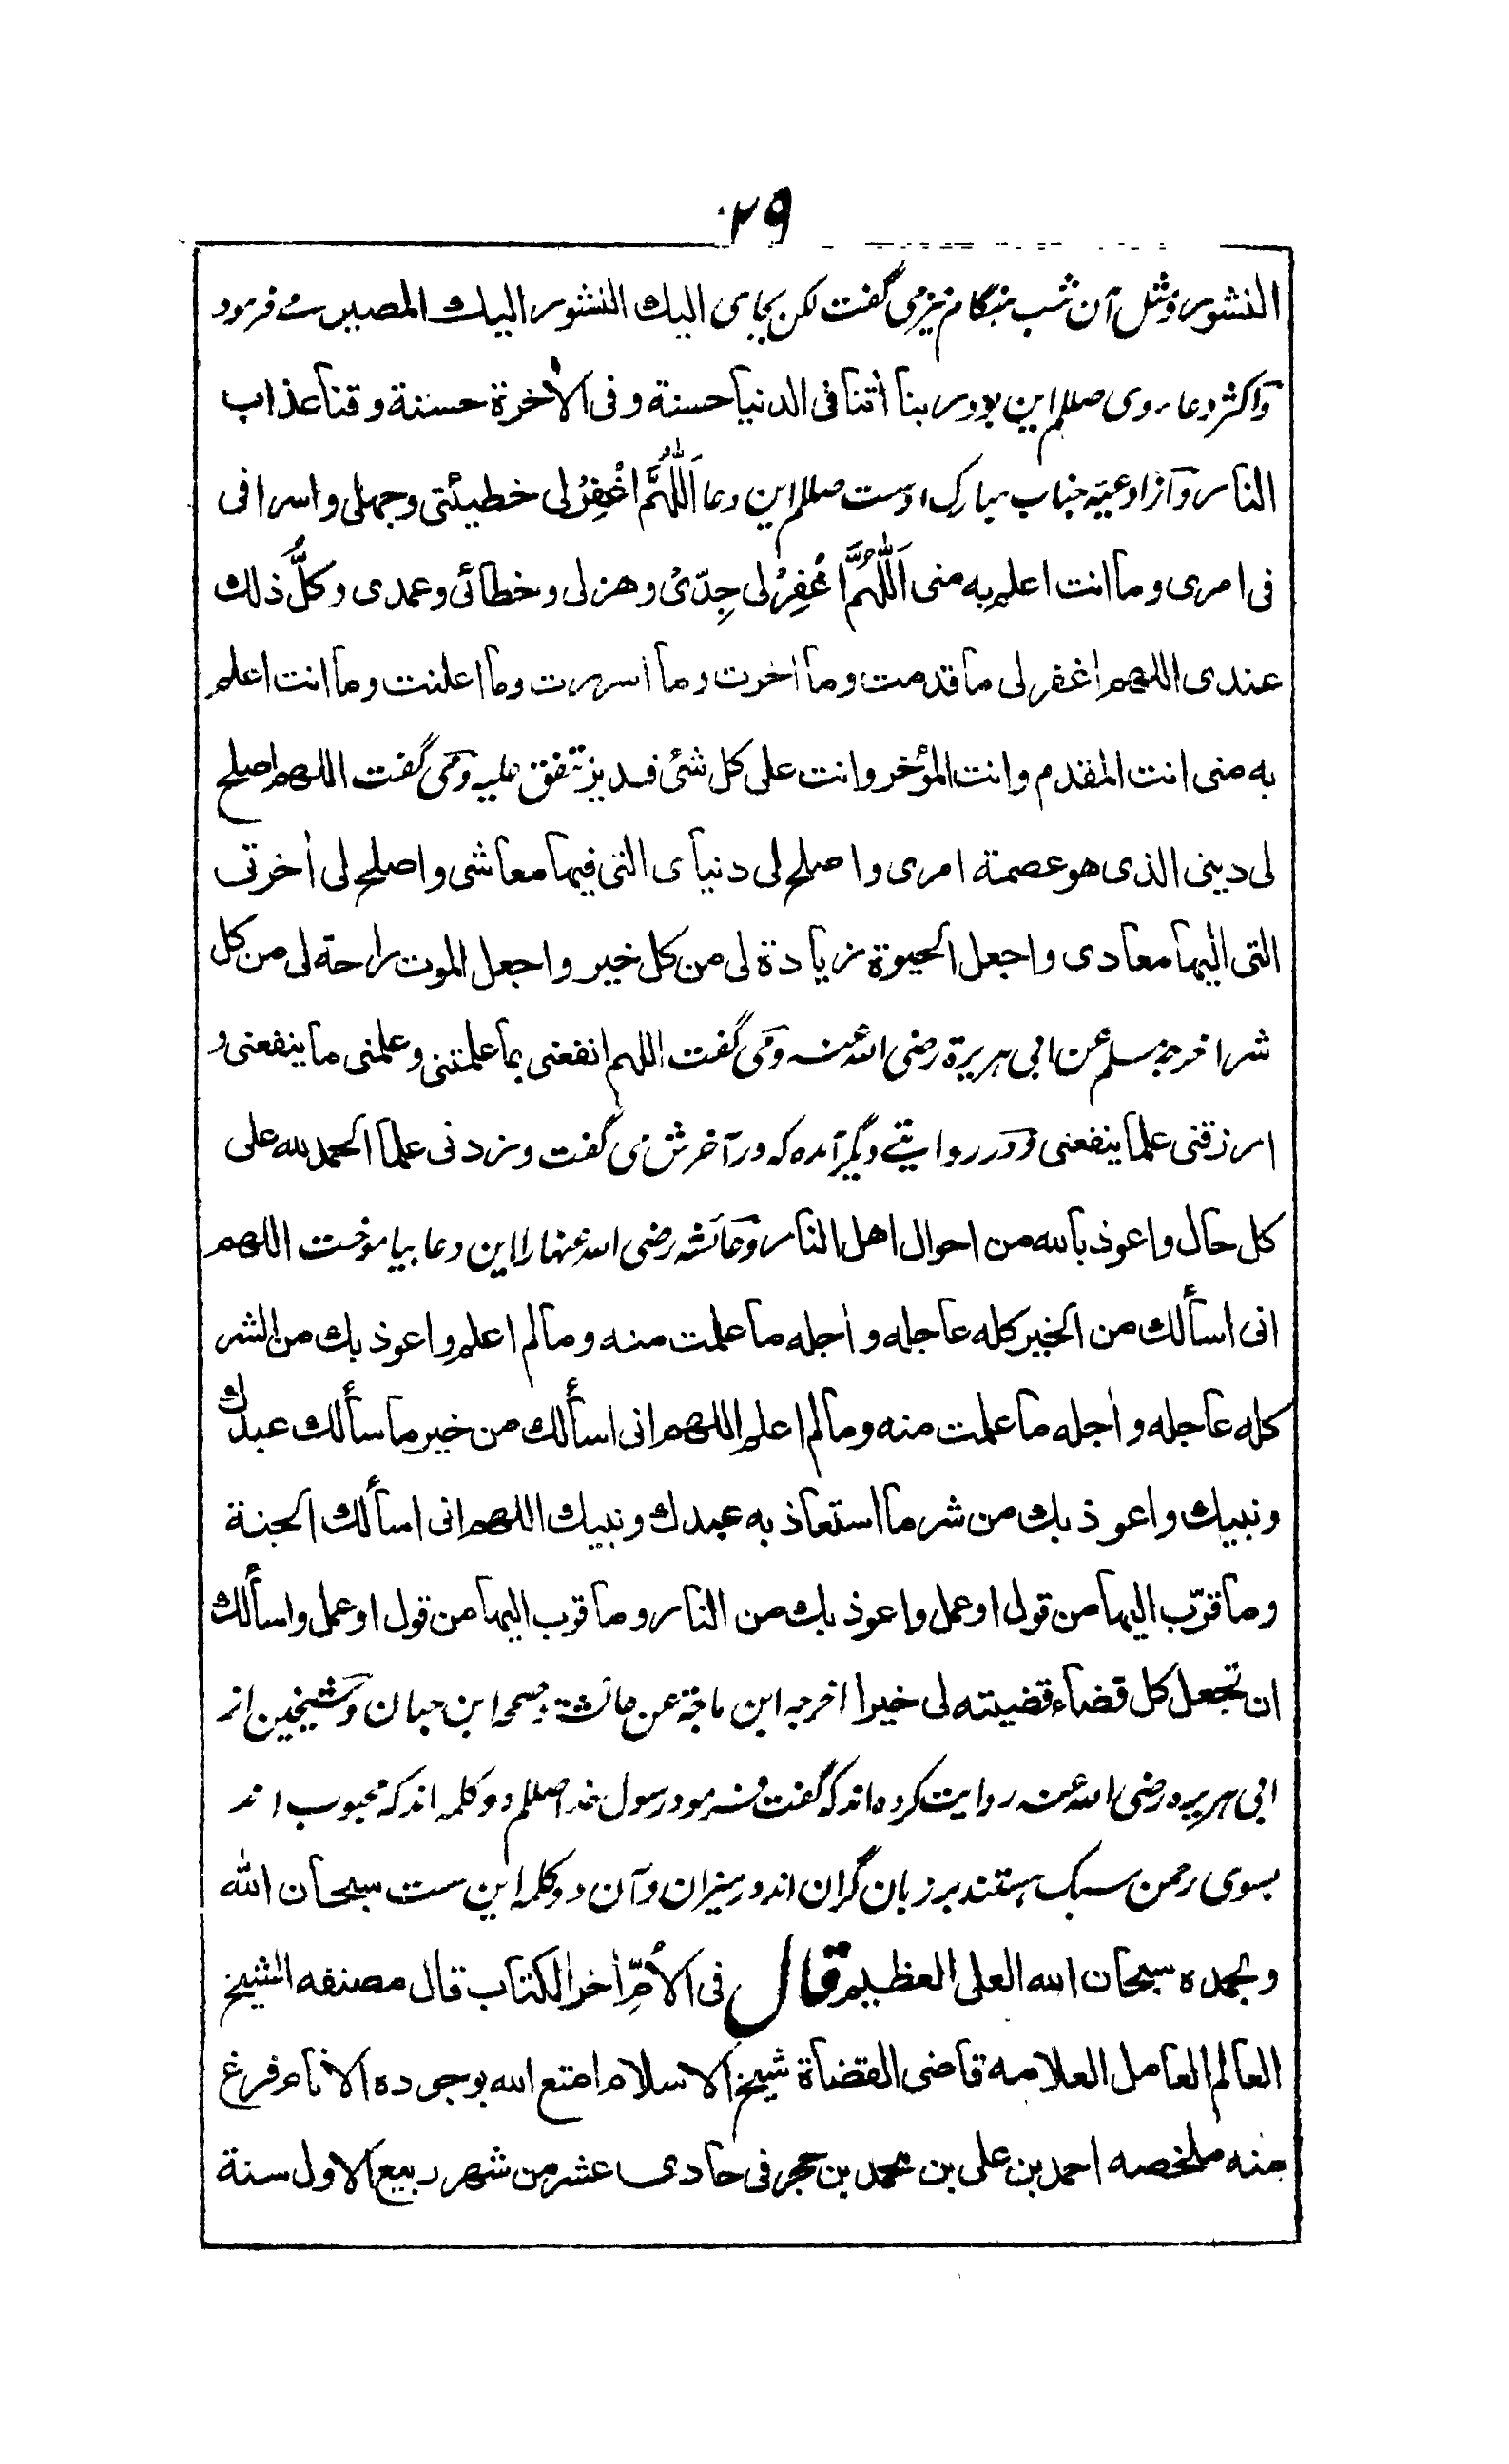 ۲۹
النشور ومثل آن شب هنگام نیز می گفت لکن بجای الیك النشور الیك المصیر مے فرمود
واکثر دعاء وی صللم این بود ربنا اٰتنا فی الدنیا حسنة و فی الاٰخرة حسنة وقنا عذاب
النار و از ادعیه جناب مبارک اوست صللم این دعا اَللّٰهُمَّ اغْفِرْ لی خطیئتی وجهلی واسرافی
فی امری وما انت اعلم به منی اَللّٰهُمَّ اغْفِرْ لی جِدّیْ وهزلی وخطائی وعمدی وکلُّ ذلك
عندی اللهم اغفر لی ما قدمت وما اخرت وما اسررت وما اعلنت وما انت اعلم
به منی انت المقدم وانت المؤخر وانت علی کل شئ قدیر متفق علیه و می گفت اللهم اصلح
لی دینی الذی هو عصمة امری واصلح لی دنیای التی فیها معاشی واصلح لی اٰخرتی
التی الیها معادی واجعل الحیوة زیادة لی من کل خیر واجعل الموت راحة لی من کل
شر اخرجه مسلم عن ابی هریرة رضی الله عنه و می گفت اللهم انفعنی بما علمتنی وعلمنی ما ینفعنی و
ارزقنی علما ینفعنی و در روایتے دیگر آمده که در آخرش می گفت وزدنی علما الحمد لله علی
کل حال واعوذ بالله من احوال اهل النار و عائشه رضی الله عنها را این دعا بیاموخت اللهم
انی اسألك من الخیر کله عاجله و اٰجله ما علمت منه وما لم اعلم واعوذ بك من الشر
کله عاجله و اٰجله ما علمت منه وما لم اعلم اللهم انی اسألك من خیر ما سألك عبدك
ونبیك واعوذ بك من شر ما استعاذ به عبدك ونبیك اللهم انی اسألك الجنة
وما قرّب الیها من قول او عمل واعوذ بك من النار وما قرب الیها من قول او عمل واسألك
ان تجعل کل قضاء قضیته لی خیرا اخرجه ابن ماجة عن عائشة وصححه ابن حبان و شیخین از
ابی هریره رضی الله عنه روایت کرده اند که گفت فرمود رسول خدا صللم دو کلمه اند که محبوب اند
بسوی رحمن سبک هستند بر زبان گران اند در میزان و آن دو کلمه این ست سبحان الله
وبحمده سبحان الله العلی العظیم قال فی الاُمِّ اٰخر الکتاب قال مصنفه الشیخ
العالم العامل العلامه قاضی القضاة شیخ الاسلام امتع الله بوجوده الانام فرغ
منه ملخصه احمد بن علی بن محمد بن حجر فی حادی عشر من شهر ربیع الاول سنة